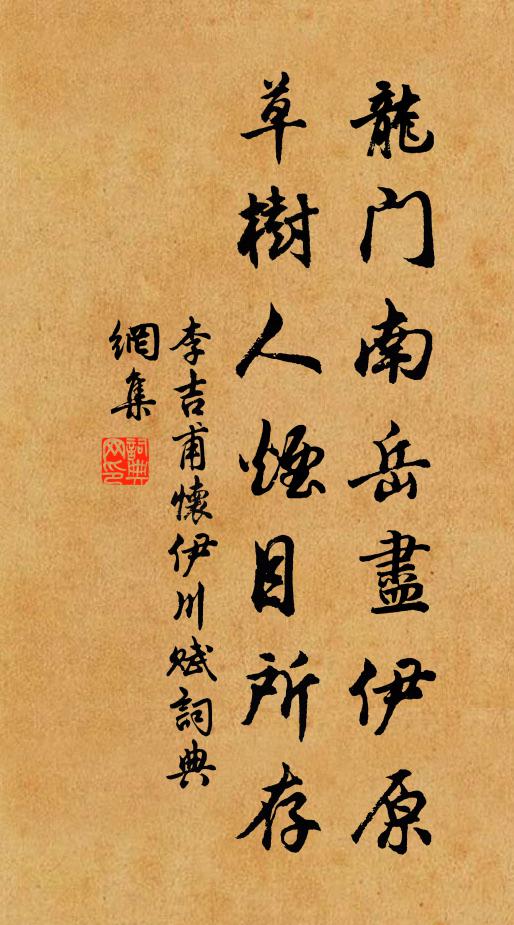 龍门南岳盡伊原
草樹人煙目所存
李吉甫懷伊川赋詞典
網集
詞典网印